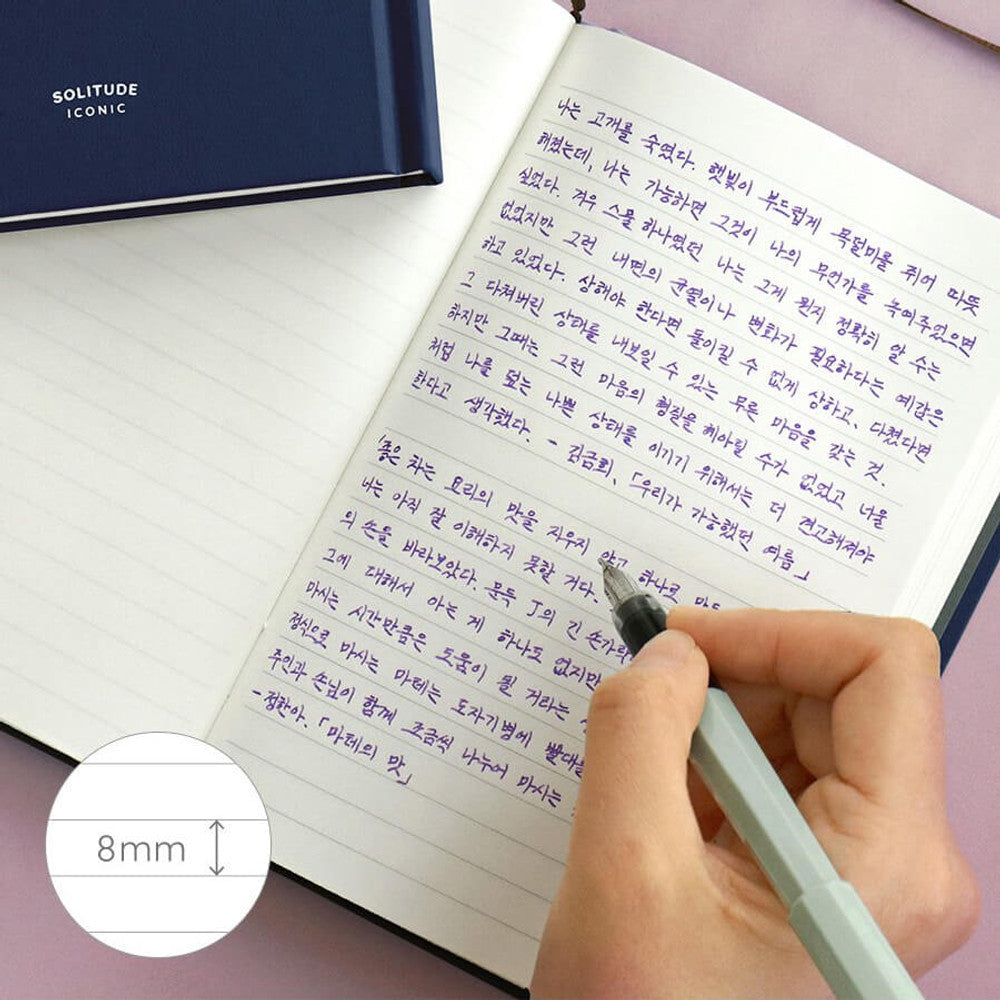 SOLITUDE
ICONIC
나는 고개를 숙였다. 햇빛이 부드럽게 목덜미를 쥐어 따뜻
해졌는데, 나는 가능하면 그것이 나의 무언가를 녹여주었으면
싶었다. 겨우 스물 하나였던 나는 그게 뭔지 정확히 알 수는
없었지만 그런 내면의 균열이나 변화가 필요하다는 예감은
하고 있었다. 상해야 한다면 돌이킬 수 없게 상하고, 다쳤다면
그 다쳐버린 상태를 내보일 수 있는 무른 마음을 갖는 것.
하지만 그때는 그런 마음의 형질을 헤아릴 수가 없었고 너울
처럼 나를 덮는 나쁜 상태를 이기기 위해서는 더 견고해져야
한다고 생각했다. - 김금희, 「우리가 가능했던 여름」
「좋은 차는 요리의 맛을 지우지 않고 하나로
너는 아직 잘 이해하지 못할 거다.
의 손을 바라보았다. 문득 J의 긴 손가락
그에 대해서 아는 게 하나도 없지만
마시는 시간만큼은 도움이 될 거라는
정식으로 마시는 마테는 도자기병에 빨대를
주인과 손님이 함께 조금씩 나누어 마시는
- 정한아, 「마테의 맛」
8mm